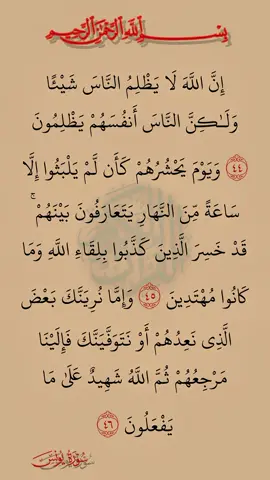 بِسْمِ اللَّهِ الرَّحْمَٰنِ الرَّحِيمِ
إِنَّ اللَّهَ لَا يَظْلِمُ النَّاسَ شَيْـًٔا
وَلَـٰكِنَّ النَّاسَ أَنفُسَهُمْ يَظْلِمُونَ
﴿٤٤﴾ وَيَوْمَ يَحْشُرُهُمْ كَأَن لَّمْ يَلْبَثُوا إِلَّا
سَاعَةً مِّنَ النَّهَارِ يَتَعَارَفُونَ بَيْنَهُمْ ۚ
قَدْ خَسِرَ الَّذِينَ كَذَّبُوا بِلِقَاءِ اللَّهِ وَمَا
كَانُوا مُهْتَدِينَ ﴿٤٥﴾ وَإِمَّا نُرِيَنَّكَ بَعْضَ
الَّذِي نَعِدُهُمْ أَوْ نَتَوَفَّيَنَّكَ فَإِلَيْنَا
مَرْجِعُهُمْ ثُمَّ اللَّهُ شَهِيدٌ عَلَىٰ مَا
يَفْعَلُونَ ﴿٤٦﴾
سورة يونس